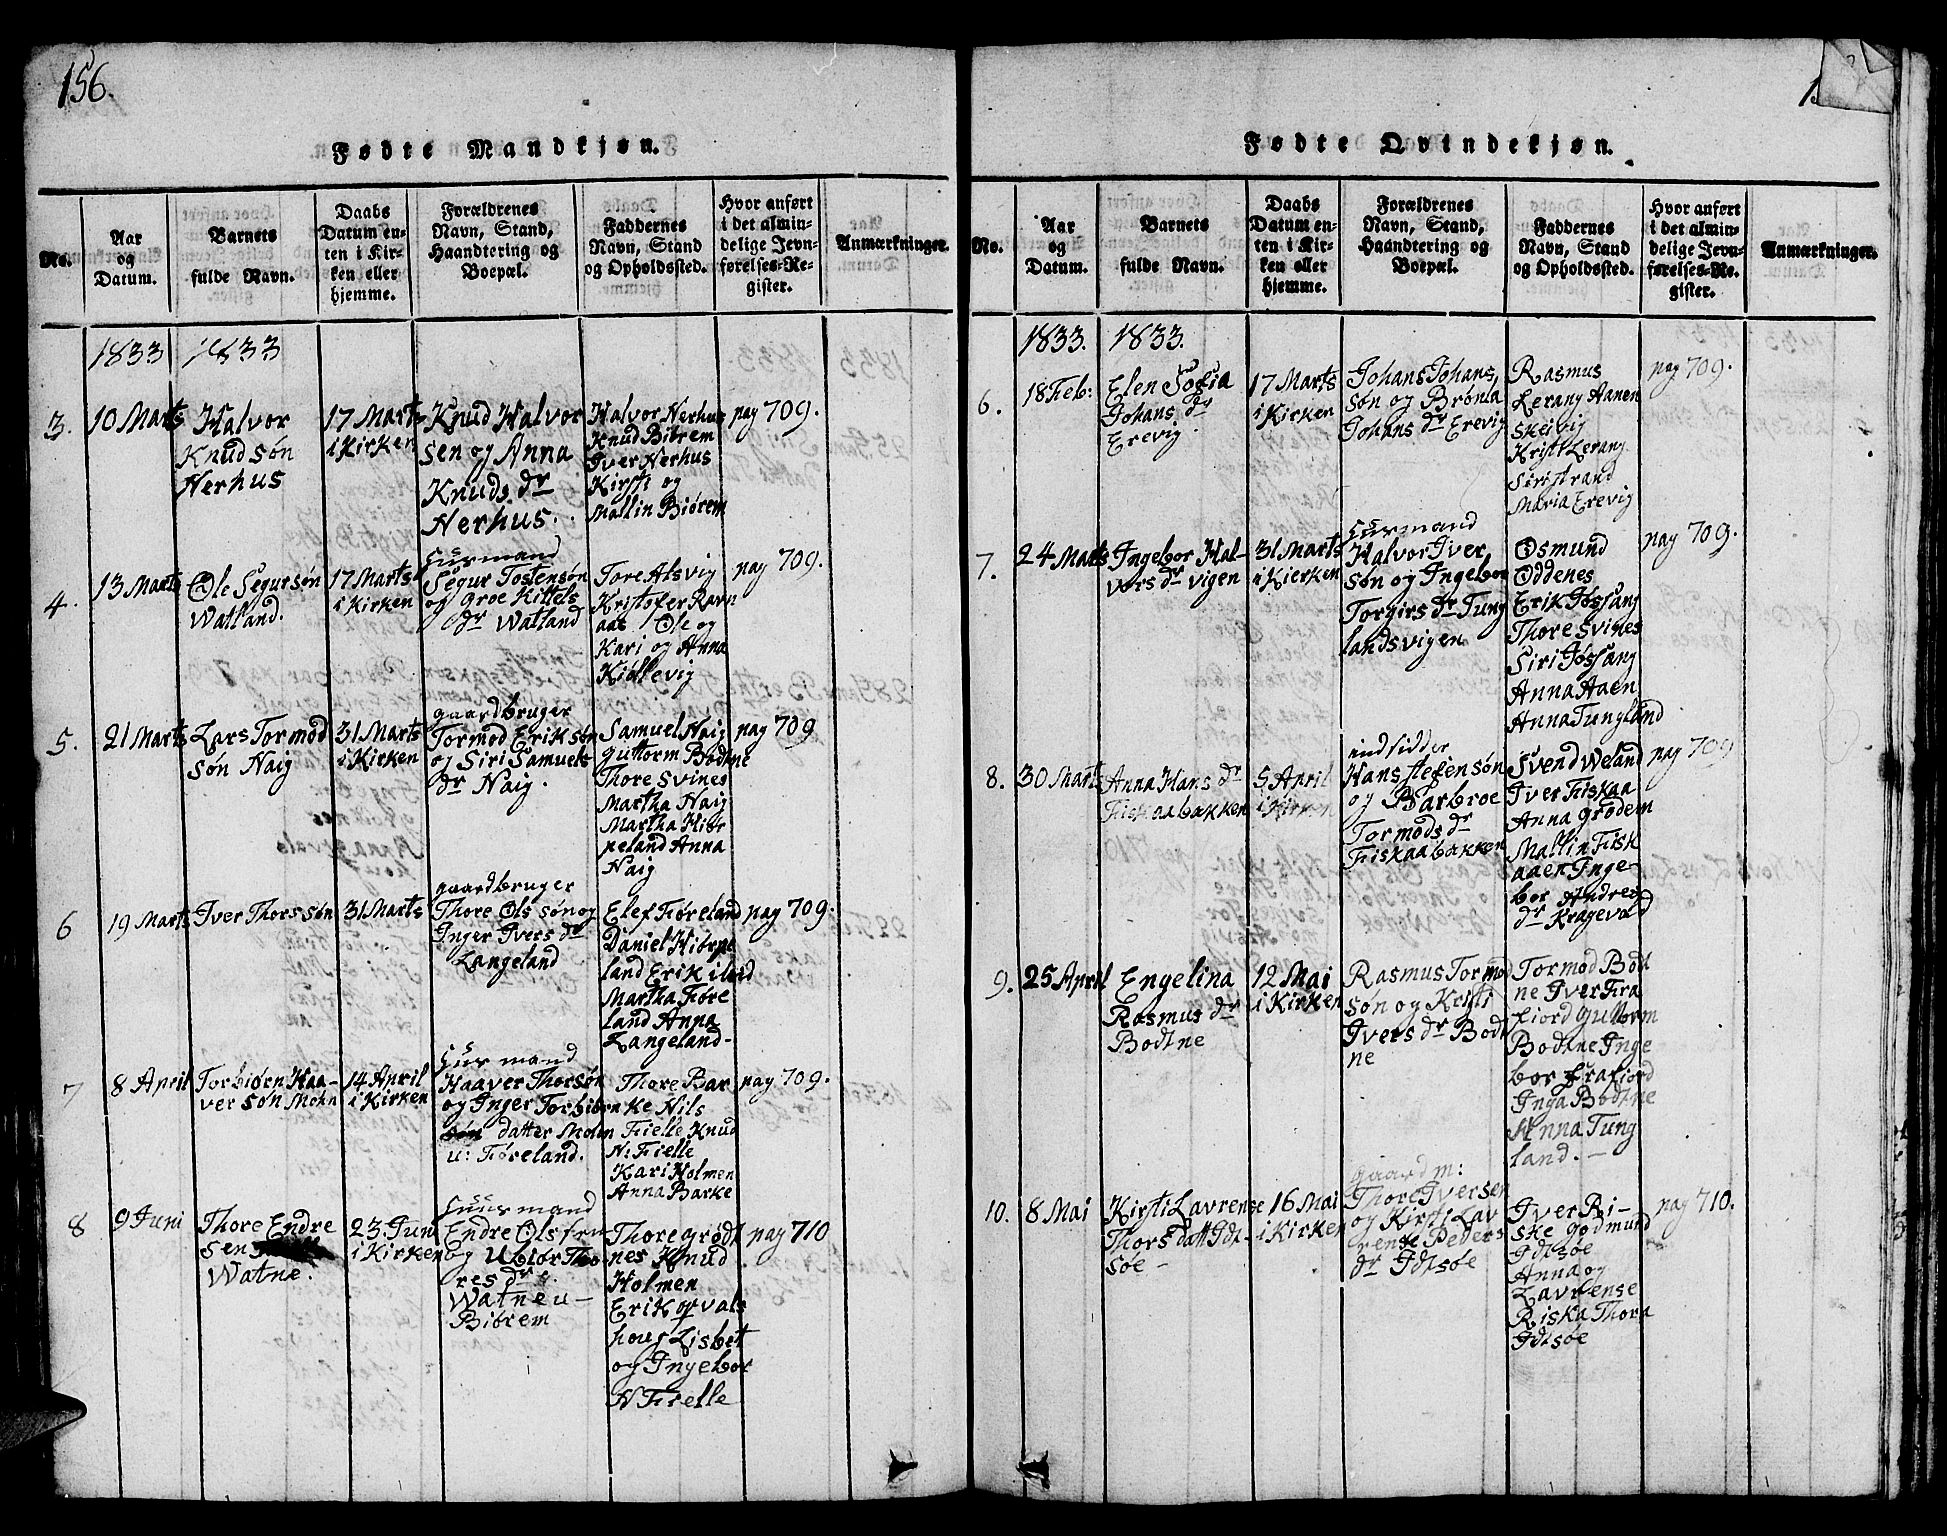 156.
Fødte Mandkjøn.
No.
Aar
og
Datum.
Barnets
fulde Navn.
Daabs
Datum en-
ten i Kir-
ken eller
hjemme.
Forældrenes
Navn, Stand,
Haandtering og
Boepæl.
Faddernes
Navn, Stand
og Opholdssted.
Hvor anført
i det almin-
delige Jevn-
førelses-Re-
gister.
Anmærkninger.
1833
1833
3.
10 Marts
Halvor
Knudsøn
Nerhus
17 Marts
i Kirken
Knud Halvor
sen og Anna
Knuds dr
Nerhus.
Halvor Nerhus
Knud Biørem
Iver Nerhus
Kirsti og
Mallin Biørem
pag 709.
4.
13 Marts
Ole Segursøn
Watland.
17 Marts
i Kirken
Huusmand
Segur Tostensøn
og Groe Kittels
dr Watland
Tore Alsvig
Kristofer Ravn
aas Ole og
Kari og Anna
Kiøllevig
pag 709.
5.
21 Marts
Lars Tormod
søn Naig
31 Marts
i Kirken
gaardbruger
Tormod Eriksøn
og Siri Samuels
dr Naig.
Samuel Naig
guttorm Bodtne
Thore Svines
Martha Naig
Martha Hiør
peland Anna
Naig
pag 709
6
19 Marts
Iver Thorssøn
31 Marts
gaardbruger
Thore Ols søn og
Inger Ivers dr
Langeland
Elef Føreland
Daniel Hiørpe
land Erik ibid
Martha Føre
land Anna
Langeland-
pag 709.
7
8 April
Torbiørn Haa-
ver søn Mohn
14 April
i Kirken
Huusmand
Haaver Thorsøn
og Inger Torbiørn
datter Mohn
u: Føreland.
Thore Bar
ke Nils
Fielle Knud
N: Fielle
Kari Holmen
Anna Barke
pag 709.
8
9 Juni
Thore Endre
sen
Watne.
23. Juni
i Kirken
Huusmand
Endre Olssen
og Tho
res dr
Watne u-
Biørem
Thore grødt
nes Knud
Holmen
Erik qvals
houg Lisbet
og Ingebor
N Fielle
pag 710
Fødte Qvindekjøn.
No.
Aar
og
Datum.
Barnets
fulde Navn.
Daabs
Datum en-
ten i Kir-
ken eller
hjemme.
Forældrenes
Navn, Stand,
Haandtering og
Boepæl.
Faddernes
Navn, Stand
og Opholdssted.
Hvor anført
i det almin-
delige Jevn-
førelses-Re-
gister.
Anmærkninger.
1833.
1833.
6.
18 Feb:
Elen Sofia
Johans dr
Erevig
17 Marts
i Kirken
Johans Johans,
søn og Brønla
Johans dr Erevig
Rasmus
Lerang Aanen
Skeivig
Kristi Lerang
Siri strand
Maria Erevig
pag 709.
7.
24 Marts
Ingebor Hal-
vors dr vigen
31 Marts
i Kierken
Huusmand
Halvor Iver
søn og Ingebor
Torgirs dr Tung
landsvigen
Osmund
Oddenes
Erik Jøssang
Thore Svines
Siri Jøssang
Anna Aaen
Anna Tungland
pag 709.
8.
30 Marts
Anna Hans dr
Fiskaabakken
5 April
i Kirken
indsidder
Hans stefensøn
og Barbroe
Tormods dr
Fiskaabakken
Svend Weland
Iver Fiskaa
Anna grødem
Mallin Fisk
aaen Inge-
bor Andreas
dr Kragevad
pag 709
9.
25 April
Engelina
Rasmus dr
Bodtne
12 Mai
i Kirken
Rasmus Tormod
søn og Kristi
Ivers dr Bodt
ne
Tormod Bodt
ne Iver Fra
fiord Guttorm
Bodtne Inge
bor frafiord
Inga Bodtne
Anna Tung
land.-
10.
8 Mai
Kirsti Lavrense
Thors datt Idt-
søe-
16 Mai
i Kirken
gaardm:
Thore Iversen
og Kirsti Lav
rense Peders
dr Idtsøe
Iver Ri-
ske godmund
Idtsøe
Anna og
Lavrense
Riska Thora
Idtsøe
pag 710.